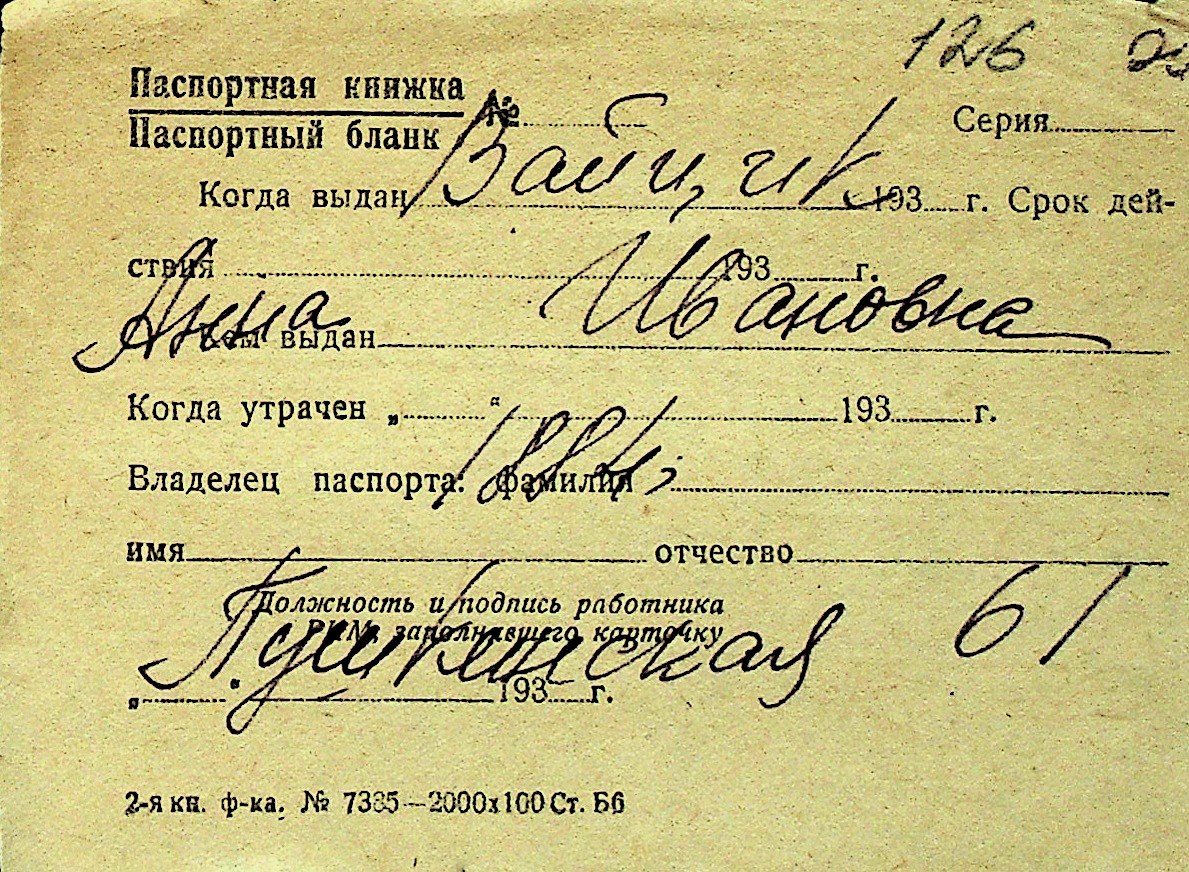 126
Паспортная книжка
Паспортный бланк № Серия
Вайцик
Когда выдан 193 г. Срок дей-
ствия 193 г.
Анна Ивановна
Кем выдан
Когда утрачен „ “ 193 г.
1884
Владелец паспорта: фамилия
имя отчество
Должность и подпись работника
РКМ, заполнявшего карточку
Пушкинская 61
„ “ 193 г.
2-я кн. ф-ка. № 7385—2000х100 Ст. Б6